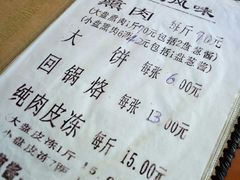 风味
熏肉 每斤70元
(大盘熏肉1斤70元包括2盘葱酱)
(小盘熏肉6两42元包括1盘葱酱)
大饼 每张6.00元
回锅烙 每张13.00元
纯肉皮冻 每斤15.00元
大盘皮冻1斤15.
小盘皮冻